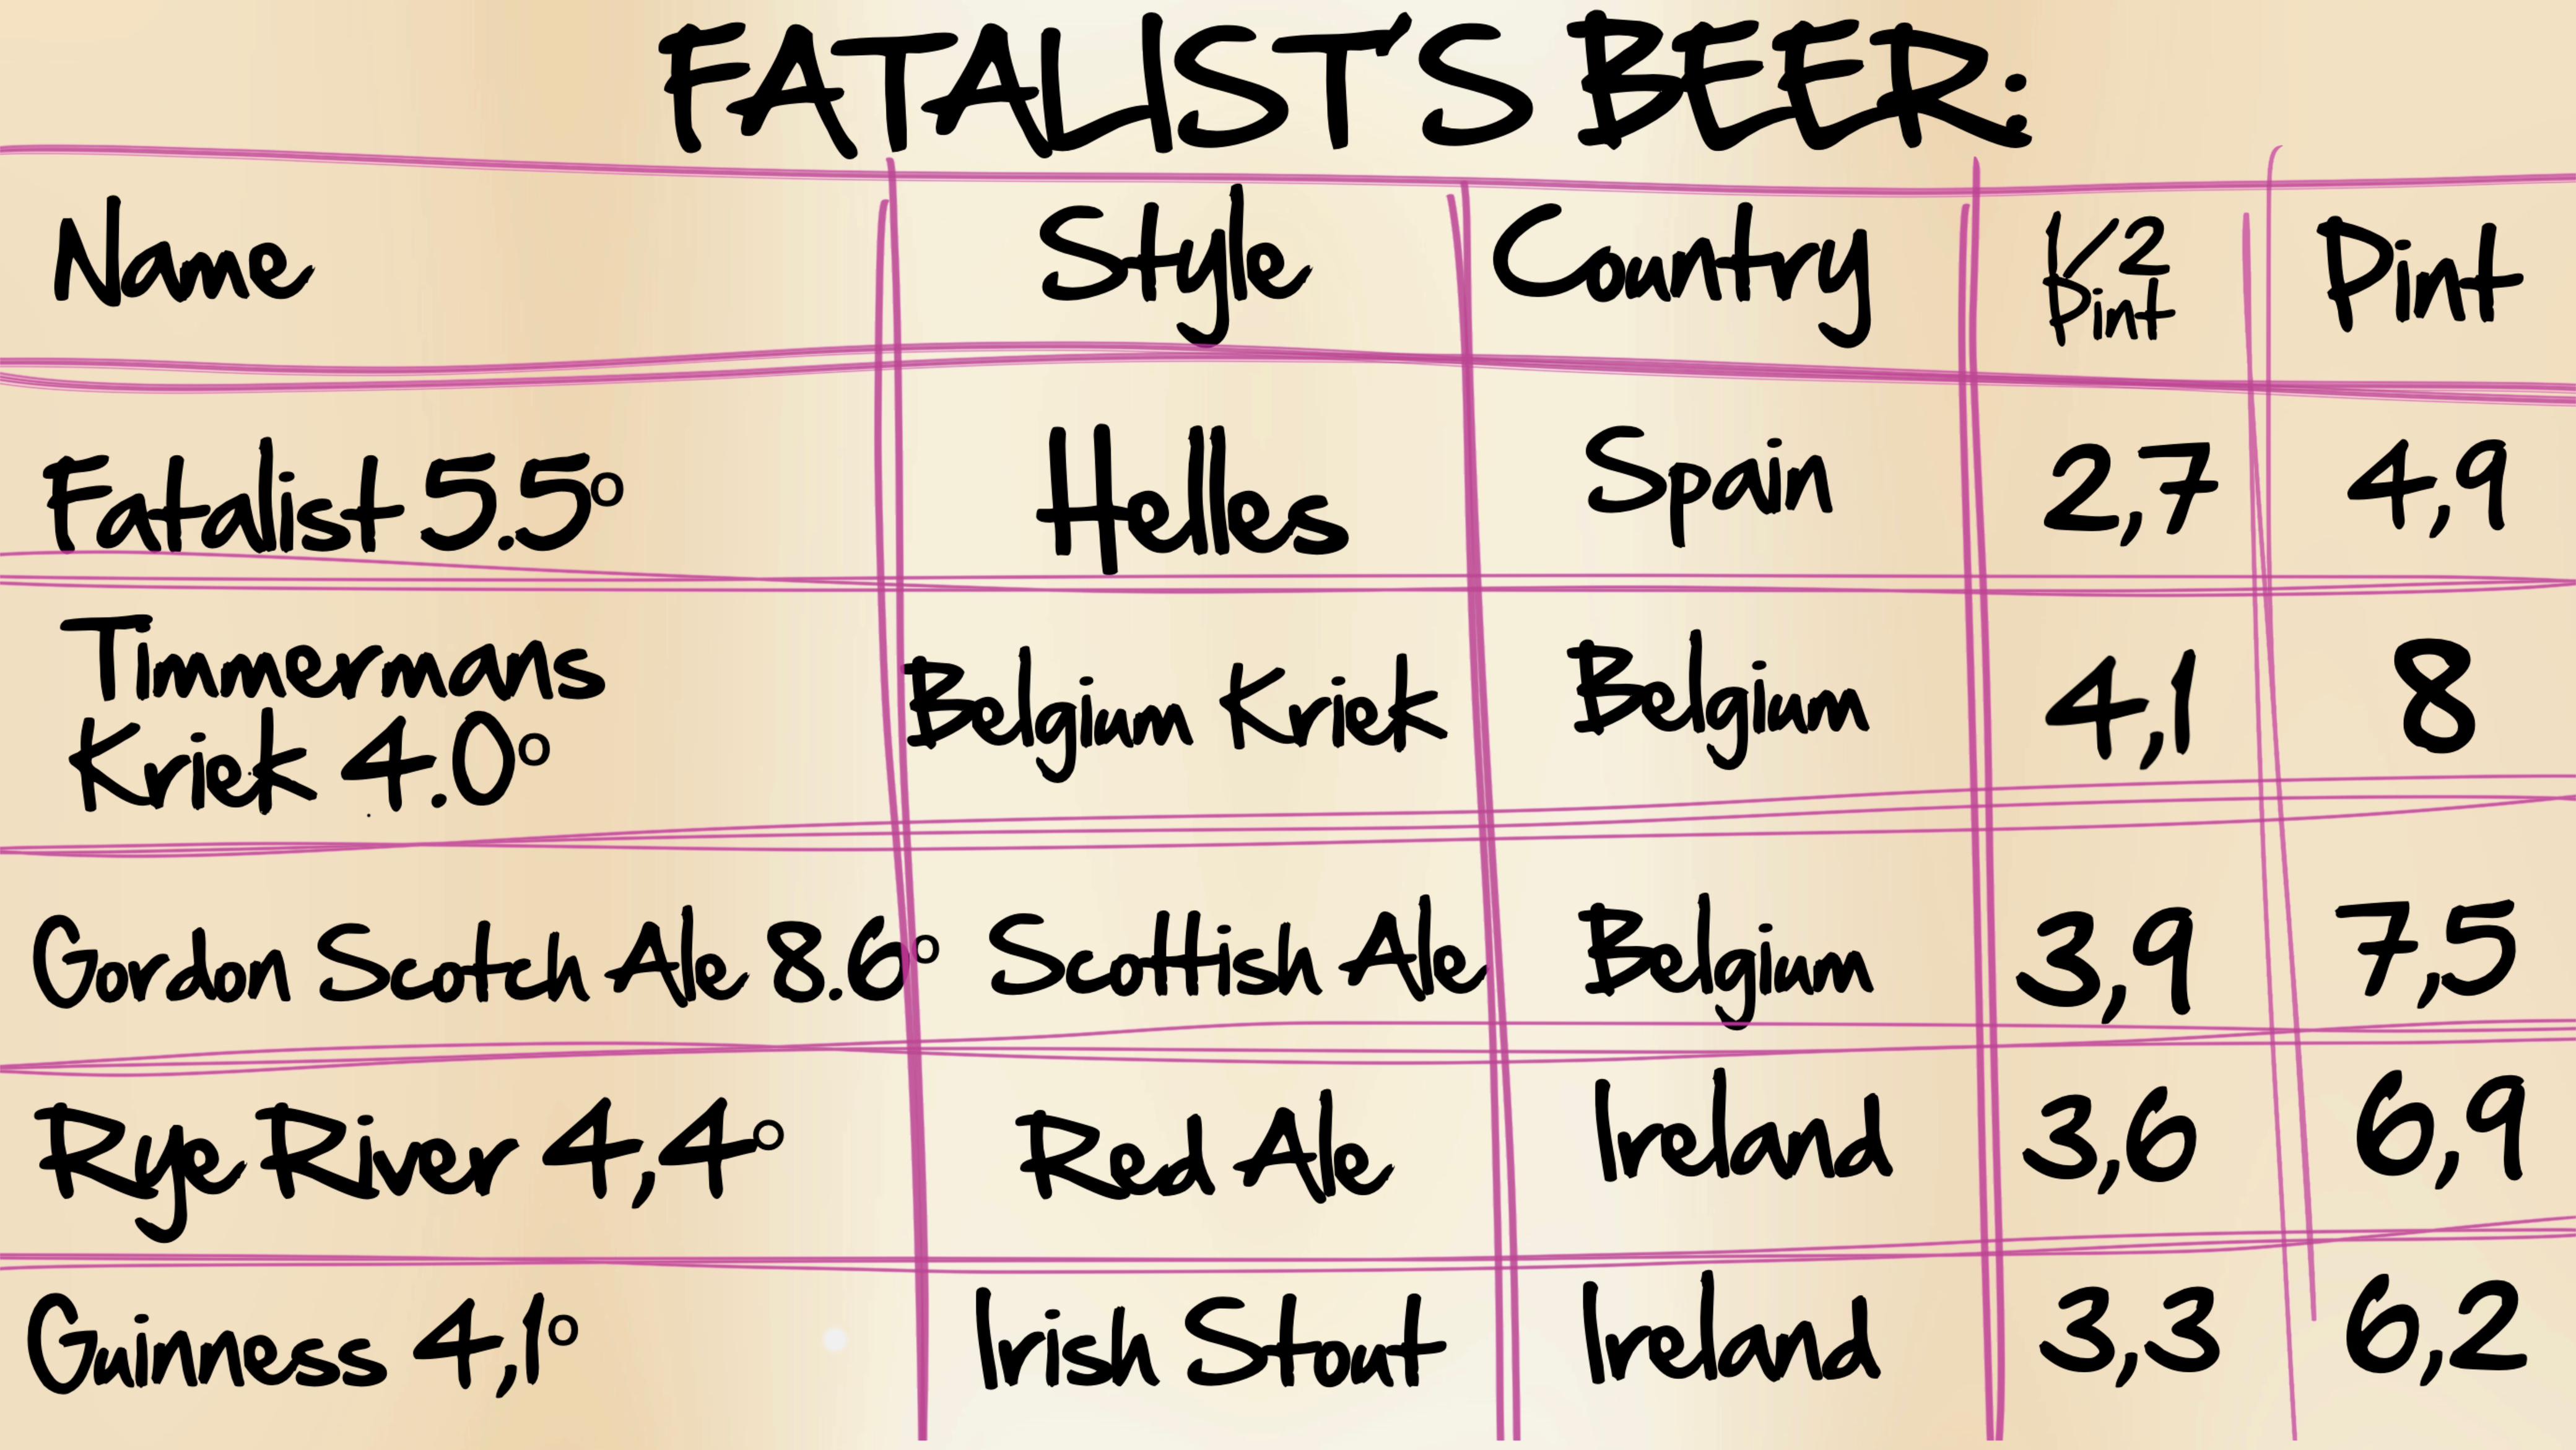 FATALIST'S BEER:
Name Style Country 1/2 Pint Pint
Fatalist 5.5° Helles Spain 2,7 4,9
Timmermans
Kriek 4.0° Belgium Kriek Belgium 4,1 8
Gordon Scotch Ale 8.6° Scottish Ale Belgium 3,9 7,5
Rye River 4,4° Red Ale Ireland 3,6 6,9
Guinness 4,1° Irish Stout Ireland 3,3 6,2